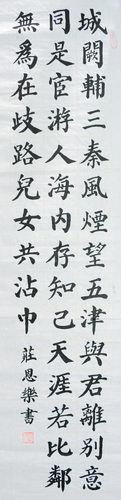 城闕輔三秦風煙望五津與君離別意
同是宦游人海内存知己天涯若比鄰
無為在歧路兒女共沾巾
莊恩樂書